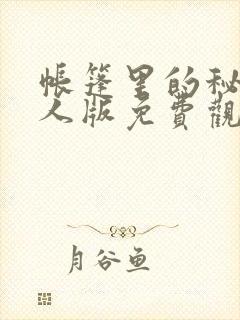 帳篷里的秘
人版免費觀
月谷鱼